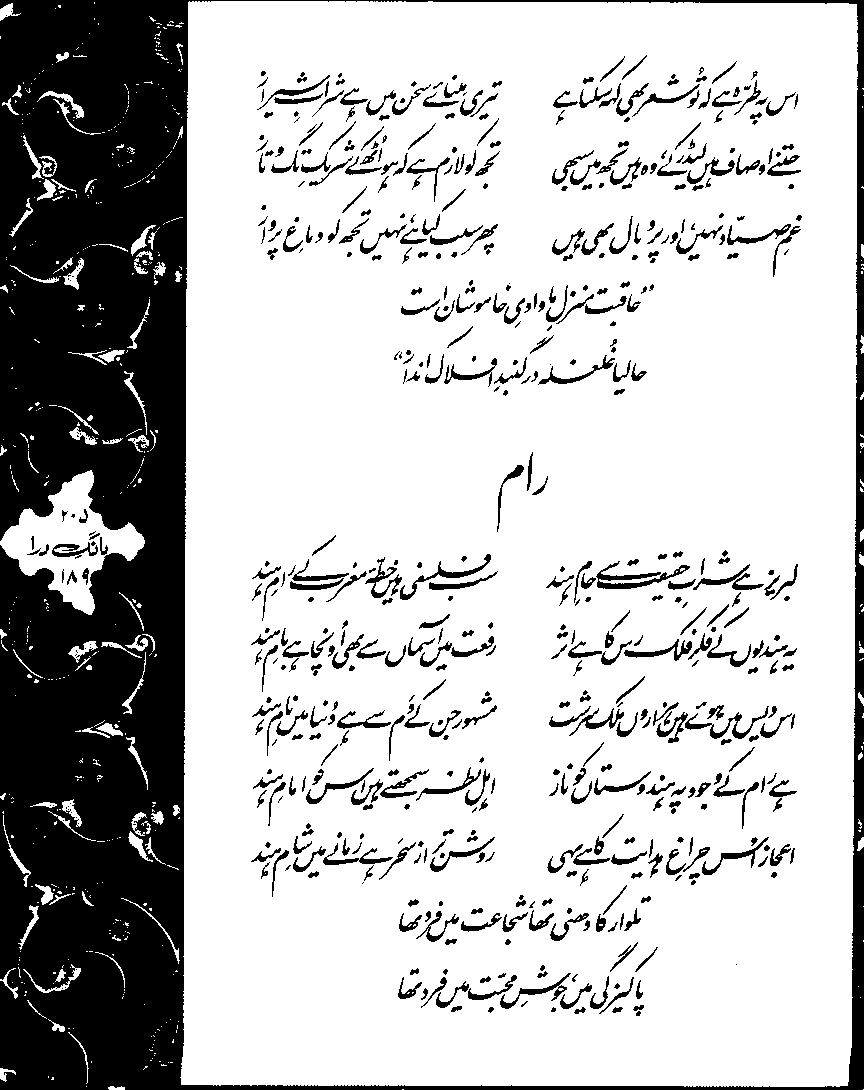 اس پہ طُرّہ ہے کہ تُو شعر بھی کہہ سکتا ہے تیری مینائے سخن میں ہے شرابِ شیراز
جتنے اوصاف ہیں لیڈر کے، وہ ہیں تجھ میں سبھی تجھ کو لازم ہے کہ ہو اُٹھ کے شریکِ تگ و تاز
غمِ صیّاد نہیں، اور پر و بال بھی ہیں پھر سبب کیا ہے، نہیں تجھ کو دماغِ پرواز
”عاقبت منزلِ ما وادیِ خاموشان است
حالیا غُلغلہ در گنبدِ افلاک انداز“
رام
لبریز ہے شرابِ حقیقت سے جامِ ہند سب فلسفی ہیں خطّۂ مغرب کے رامِ ہند
یہ ہندیوں کے فکرِ فلک رس کا ہے اثر رفعت میں آسماں سے بھی اُونچا ہے بامِ ہند
اس دیس میں ہوئے ہیں ہزاروں ملَک سرشت مشہور جن کے دَم سے ہے دُنیا میں نامِ ہند
ہے رام کے وجود پہ ہندوستاں کو ناز اہلِ نظر سمجھتے ہیں اس کو امامِ ہند
اعجاز اس چراغِ ہدایت کا ہے یہی روشن تر از سحَر ہے زمانے میں شامِ ہند
تلوار کا دھنی تھا، شجاعت میں فرد تھا
پاکیزگی میں، جوشِ محبّت میں فرد تھا
۲۰۵
بانگِ درا
۱۸۹